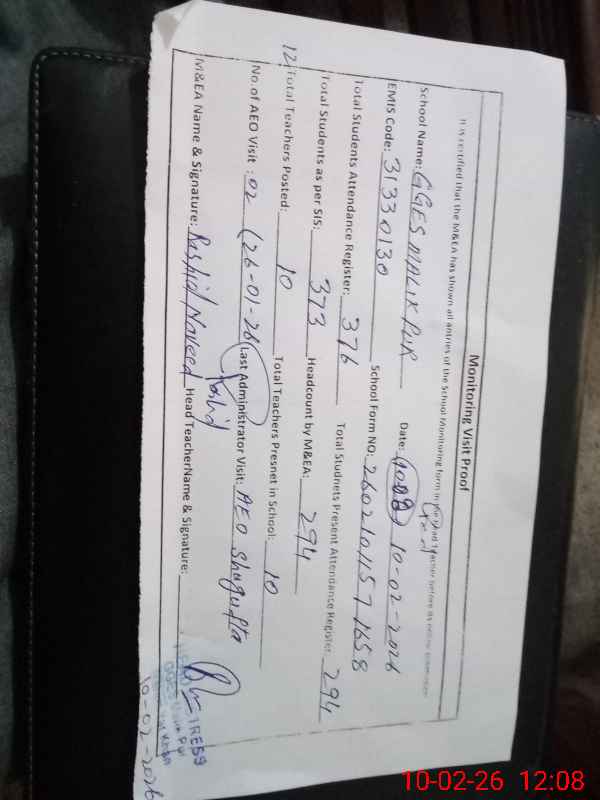 Monitoring Visit Proof
It is certified that the M&EA has shown all entries of the School Monitoring form in the Head Teacher before its online submission
School Name: GGES MALIKPUR Date: 10-02-2026
EMIS Code: 31330130 School Form NO:
Total Students Attendance Register: 376 Total Studnets Present Attendance Register: 294
Total Students as per SIS: 373 Headcount by M&EA: 294
12 Total Teachers Posted: 10 Total Teachers Presnet in School: 10
No.of AEO Visit : 02 (26-01-26) Last Administrator Visit: AEO Shagufta
M&EA Name & Signature: Rashid Naveed Rashid Head TeacherName & Signature:
10-02-2026
10-02-26 12:08